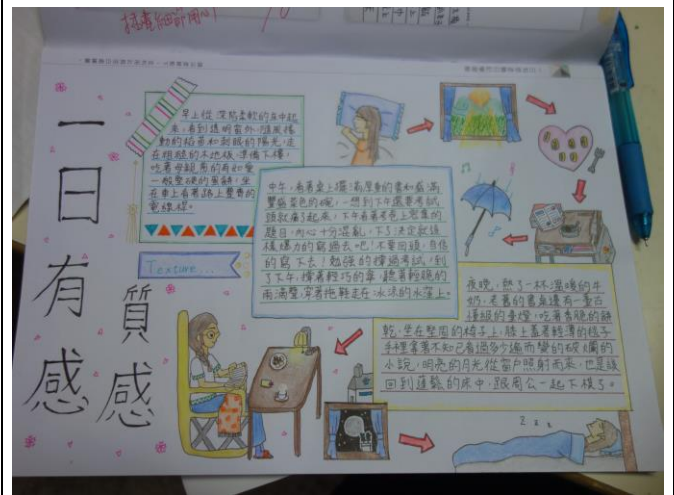 插畫細節用心
一日有感
質感
早上從深陷柔軟的床中起
來,看到透明窗外,隨風搖
動的稻香和刺眼的陽光,走
在粗糙的木地板,準備下樓,
吃著母親煮的有如愛
一般堅硬的蛋餅,坐
在車上看著路上豐青的
電線桿。
Texture...
中午,看著桌上擺滿厚重的書和盛滿
豐盛菜色的碗,一想到下午還要考試,
頭就痛了起來,下午看著考卷上密集的
題目,內心十分混亂,下了決定就這
樣爆力的寫過去吧!不要回頭,自信
的寫下去!勉強的撐過考試,到
了下午,撐著輕巧的傘,聽著輕脆的
雨滴聲,穿著拖鞋走在冰涼的水漥上。
夜晚,熱了一杯溫暖的牛
奶,老舊的書桌邊有一臺古
邊眠的臺燈,吃著香脆的餅
乾,坐在堅固的椅子上,膝上蓋著輕薄的毯子
手裡拿著不知已看過多少遍而變的破爛的
小說,明亮的月光從窗戶照射而來,也是該
回到蓬鬆的床中,跟周公一起下棋了。
z z z